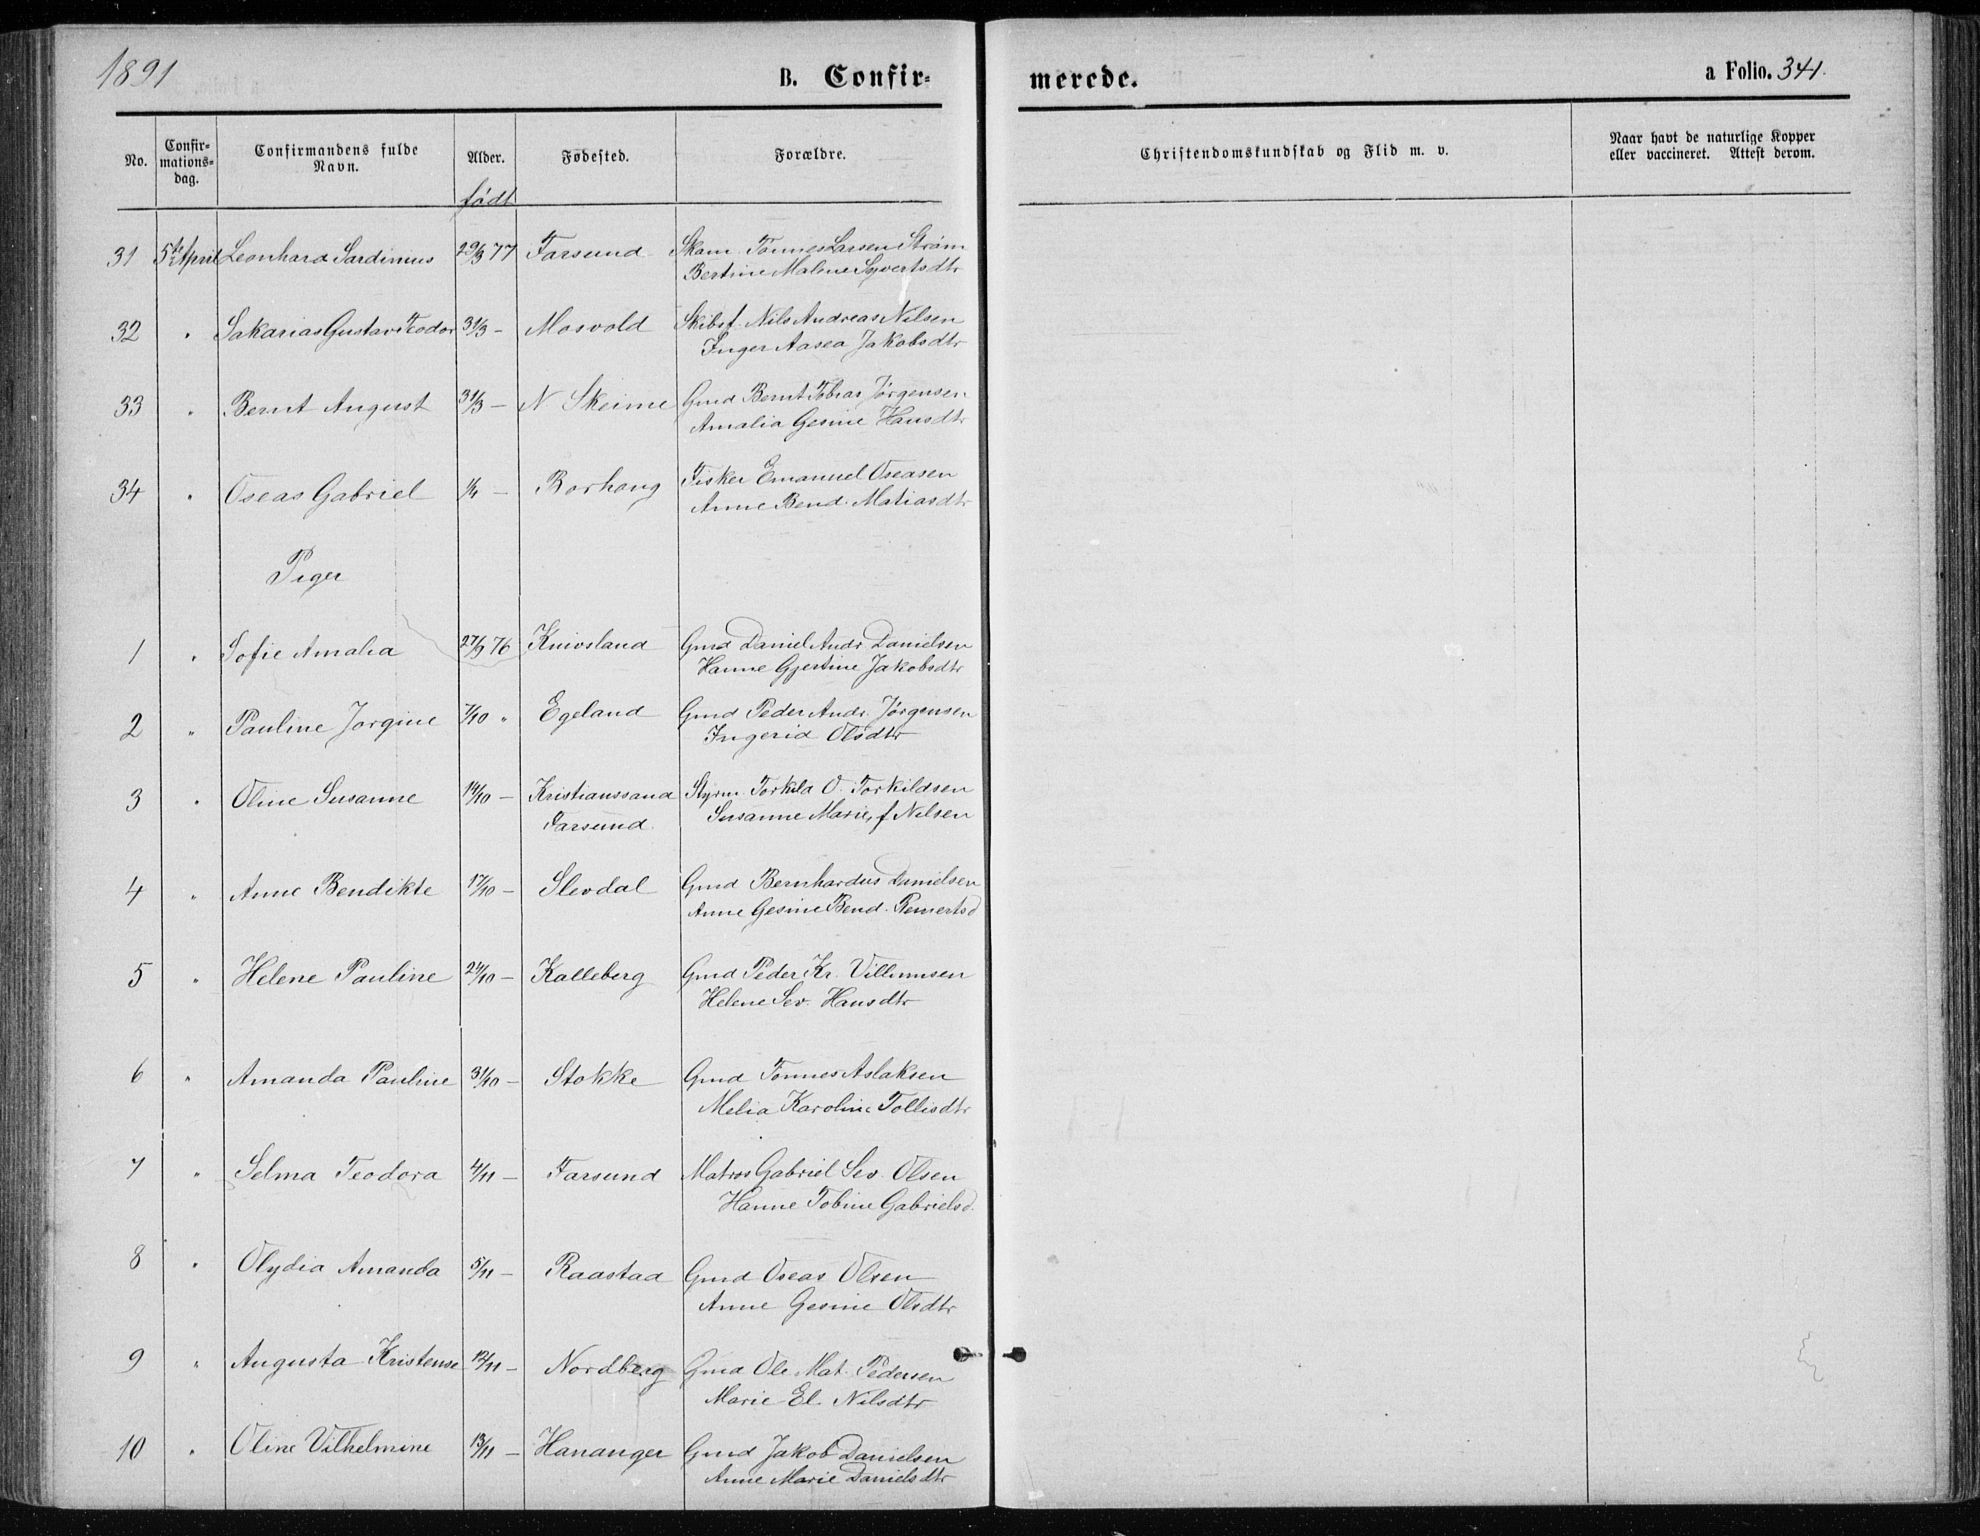 1891
B. Confir-
merede.
a Folio. 341.
No.
Confir-
mations-
dag.
Confirmandens fulde
Navn.
Alder.
født
Fødested.
Forældre.
Christendomskundskab og Flid m. v.
Naar havt de naturlige Kopper
eller vaccineret. Attest derom.
31 5te April Leonhard Sardinius 29/3 77 Farsund Skom. Tønnes Larsen Strøm
Bertine Malene Syvertsdtr
32 " Sakarias Gustav Teodor 31/3 – Mosvold Skibsf. Nils Andreas Nilsen
Inger Aasea Jakobsdtr
33 " Bernt August 31/3 – N Skeime Gmd Bernt Tobias Jørgensen
Amalia Gesine Hansdtr
34 " Oseas Gabriel 1/4 – Borhoug Fisker Emanuel Oseasen
Anne Bend. Matiasdtr
Piger
1 " Sofie Amalia 27/9 76 Knivsland Gmd Daniel Andr. Danielsen
Hanne Gjertine Jakobsdtr
2 " Pauline Jorgine 7/10 " Egeland Gmd Peder Andr. Jørgensen
Ingerid Olsdtr
3 " Oline Susanne 14/10 – Kristianssand Styrm. Torkild O. Torkildsen
Farsund. Susanne Marie, f Nilsen
4 " Anne Bendikte 17/10 – Slevdal Gmd Bernhardus Danielsen
Anne Gesine Bend. Reinertsd
5 " Helene Pauline 24/10 – Kalleberg Gmd Peder Kr. Villumsen
Helene Sev. Hansdtr
6 " Amanda Pauline 31/10 – Stokke Gmd Tønnes Aslaksen
Melia Karoline Tollisdtr
7 " Selma Teodora 4/11 – Farsund Matros Gabriel Sev. Olsen
Hanne Tobine Gabrielsd.
8 " Olydia Amanda 5/11 – Raastad Gmd Oseas Olsen
Anne Gesine Olsdtr
9 " Augusta Kristense 12/11 – Nordberg Gmd Ole Mat. Pedersen
Marie El. Nilsdtr
10 " Oline Vilhelmine 13/11 – Hananger Gmd Jakob Danielsen
Anne Marie Danielsdtr